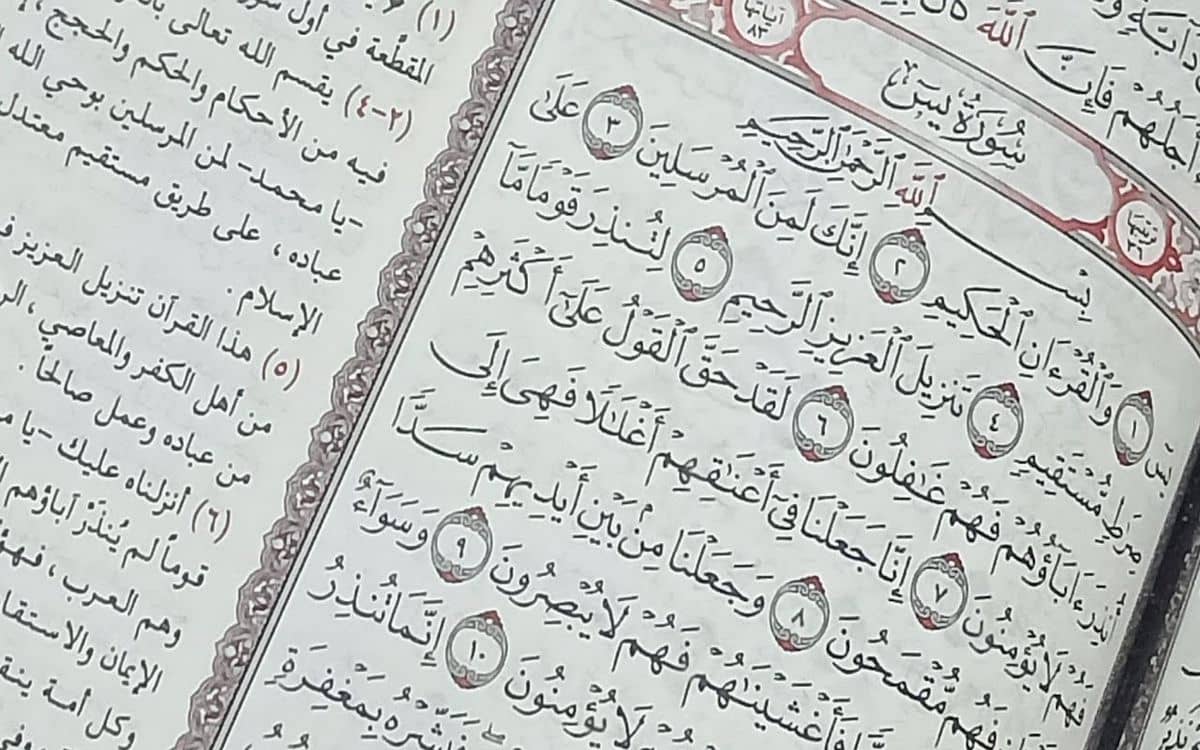 دَآبَّةٍ
أَجَلُهُمْ فَإِنَّ ٱللَّهَ
آياتها ٨٣
سُورَةُ يسٓ
ترتيبها ٣٦
بِسْمِ ٱللَّهِ ٱلرَّحْمَٰنِ ٱلرَّحِيمِ
يسٓ ١ وَٱلْقُرْءَانِ ٱلْحَكِيمِ ٢ إِنَّكَ لَمِنَ ٱلْمُرْسَلِينَ ٣ عَلَىٰ
صِرَٰطٍ مُّسْتَقِيمٍ ٤ تَنزِيلَ ٱلْعَزِيزِ ٱلرَّحِيمِ ٥ لِتُنذِرَ قَوْمًا مَّآ
أُنذِرَ ءَابَآؤُهُمْ فَهُمْ غَٰفِلُونَ ٦ لَقَدْ حَقَّ ٱلْقَوْلُ عَلَىٰٓ أَكْثَرِهِمْ
فَهُمْ لَا يُؤْمِنُونَ ٧ إِنَّا جَعَلْنَا فِىٓ أَعْنَٰقِهِمْ أَغْلَٰلًا فَهِىَ إِلَى
فَهُم مُّقْمَحُونَ ٨ وَجَعَلْنَا مِنۢ بَيْنِ أَيْدِيهِمْ سَدًّا
فَأَغْشَيْنَٰهُمْ فَهُمْ لَا يُبْصِرُونَ ٩ وَسَوَآءٌ
لَا يُؤْمِنُونَ ١٠ إِنَّمَا تُنذِرُ
فَبَشِّرْهُ بِمَغْفِرَةٍ
(١)
المقطّعة في أول
(٢-٤) يقسم الله تعالى
فيه من الأحكام والحكم والحجج
-يا محمد- لمن المرسلين بوحي الله
عباده، على طريق مستقيم معتدل
الإسلام.
(٥) هذا القرآن تنزيل العزيز
من أهل الكفر والمعاصي،
من عباده وعمل صالحا.
(٦) أنزلناه عليك -يا
قوماً لم يُنذَرْ آباؤهم
وهم العرب،
الإيمان
وكل أمة